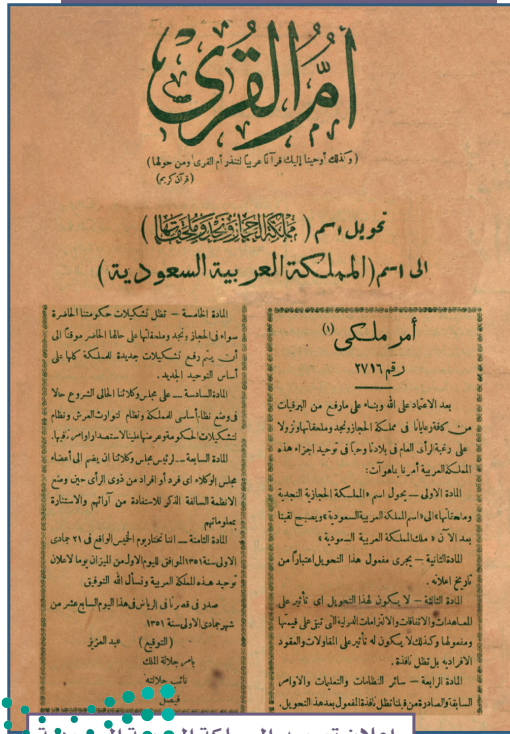 أم القرى
(وكذلك أوحينا إليك قرآنا عربيا لتنذر أم القرى ومن حولها)
(قرآن كريم)
تحويل اسم (مملكة الحجاز ونجد وملحقاتها)
الى اسم (المملكة العربية السعودية)
أمر ملكى (١)
رقم ٢٧١٦
بعد الاعتماد على الله وبناء على مارفع من البرقيات
من كافة رعايانا فى مملكة الحجاز ونجد وملحقاتها ونزولا
على رغبة الرأى العام فى بلادنا وحبا فى توحيد اجزاء هذه
المملكة العربية أمرنا بما هو آت:
المادة الاولى — يحول اسم «المملكة الحجازية النجدية
وملحقاتها» الى «اسم المملكة العربية السعودية» ويصبح لقبنا
بعد الآن «ملك المملكة العربية السعودية»
المادة الثانية — يجرى مفعول هذا التحويل اعتبارا من
تاريخ اعلانه.
المادة الثالثة — لا يكون لهذا التحويل اى تأثير على
المعاهدات والاتفاقات والالتزامات الدولية التى تبقى على قيمتها
ومفعولها وكذلك لا يكون له تأثير على المقاولات والعقود
الافرادية بل تظل نافذة.
المادة الرابعة — سائر النظامات والتعليمات والاوامر
السابقة والصادرة من قبلنا تظل نافذة المفعول بعد هذا التحويل.
المادة الخامسة — تظل تشكيلات حكومتنا الحاضرة
سواء فى الحجاز ونجد وملحقاتها على حالها الحاضر موقتا الى
أن يتم رفع تشكيلات جديدة للمملكة كلها على
أساس التوحيد الجديد.
المادة السادسة — على مجلس وكلائنا الحالى الشروع حالا
فى وضع نظام أساسى للمملكة ونظام لتوارث العرش ونظام
لتشكيلات الحكومة وعرضها علينا لاستصدار اوامرنا فيها.
المادة السابعة — لرئيس مجلس وكلائنا ان يضم الى أعضاء
مجلس الوكلاء اى فرد أو افراد من ذوى الرأى حين وضع
الانظمة السالفة الذكر للاستفادة من آرائهم والاستنارة
بمعلوماتهم
المادة الثامنة — اننا نختار يوم الخميس الواقع فى ٢١ جمادى
الاولى سنة ١٣٥١ الموافق لليوم الاول من الميزان يوما لاعلان
توحيد هذه المملكة العربية ونسأل الله التوفيق
صدر فى قصرنا فى الرياض فى هذا اليوم السابع عشر من
شهر جمادى الاولى سنة ١٣٥١
(التوقيع) عبد العزيز
بامر جلالة الملك
نائب جلالته
فيصل